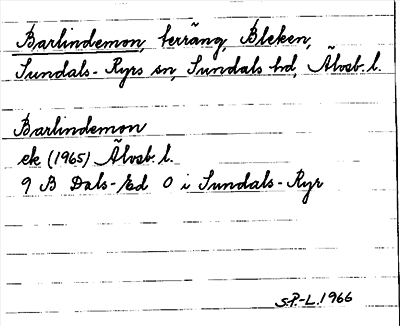 Barlindemon, terräng, Bleken,
Sundals-Ryrs sn, Sundals hd, Älvsb. l.
Barlindemon
ek (1965) Älvsb. l.
9 B Dals-Ed O i Sundals-Ryr
S.P-L. 1966